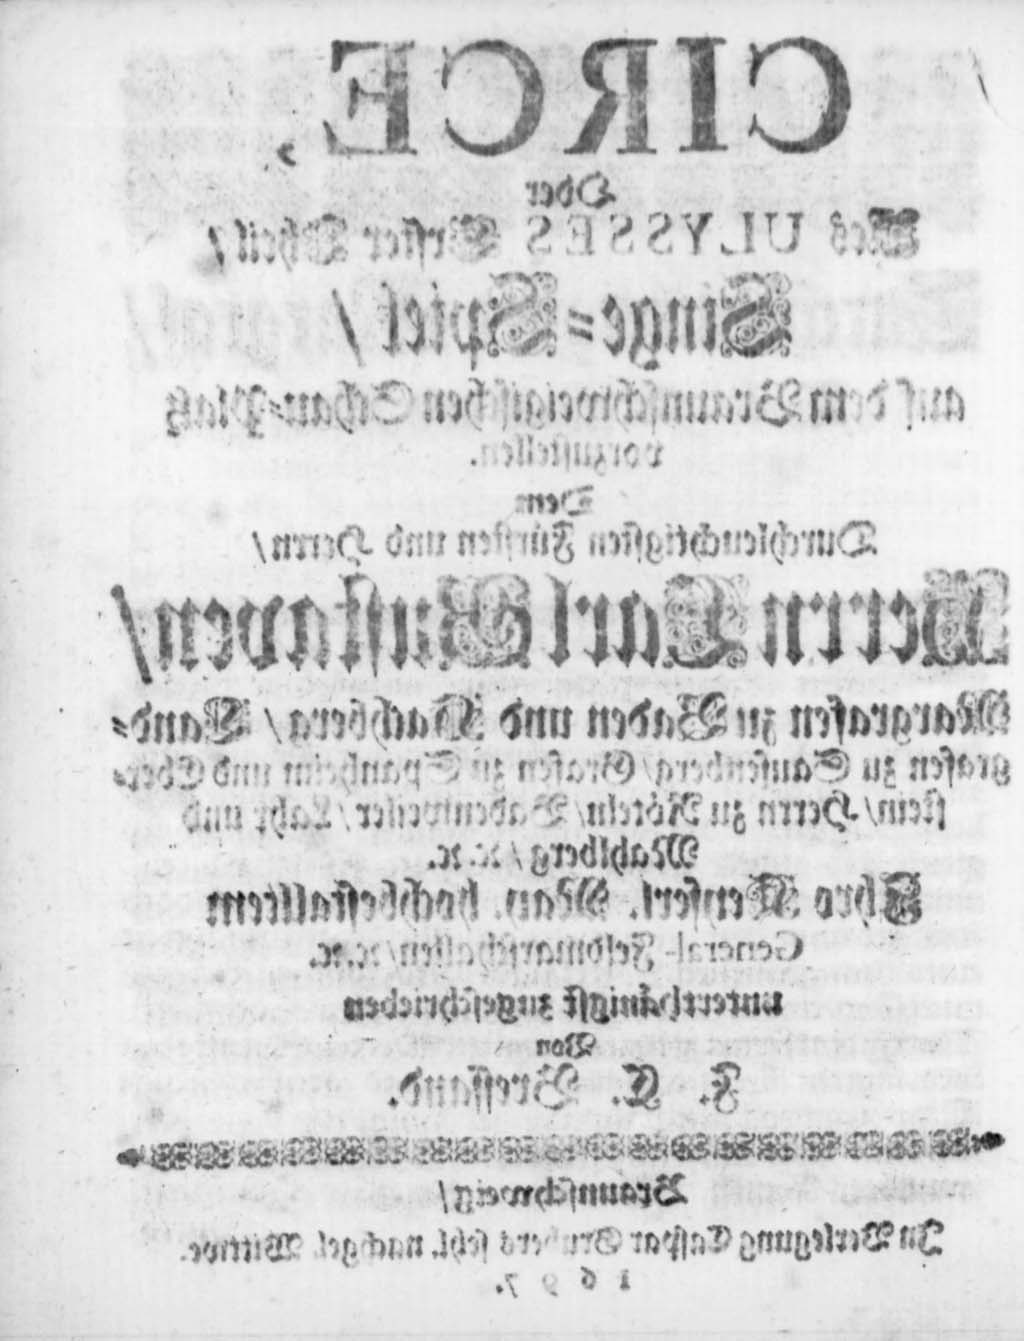 CIRCE,
Oder
Des ULYSSES Erster Theil/
Singe=Spiel/
auf dem Braunschweigischen Schau=Platz
vorzustellen.
Dem
Durchleuchtigsten Fürsten und Herrn/
Herrn Carl Gustaven/
Margrafen zu Baden und Hachberg/ Land=
grafen zu Sausenberg/ Grafen zu Spanheim und Eber=
stein/ Herrn zu Röteln/ Badenweiler/ Lahr und
Mahlberg/ ꝛc. ꝛc.
Ihro Keyserl. May. hochbestalltem
General-Feldmarschallen/ ꝛc. ꝛc.
unterthänigst zugeschrieben
Von
F. C. Bressand.
Braunschweig/
In Verlegung Caspar Grubers sehl. nachgel. Wittwe.
1697.